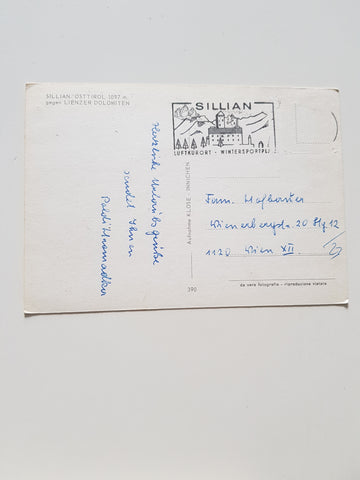 SILLIAN, OSTTIROL 1097 m
gegen LIENZER DOLOMITEN
SILLIAN
LUFTKURORT - WINTERSPORTPL
Herzliche Urlaubsgrüße
sendet Ihnen
Aufnahme KLOSE - INNICHEN
Fam. Hofbauer
Wienerbergstr. 20
1120 Wien XII.
390
da vera fotografia - riproduzione vietata